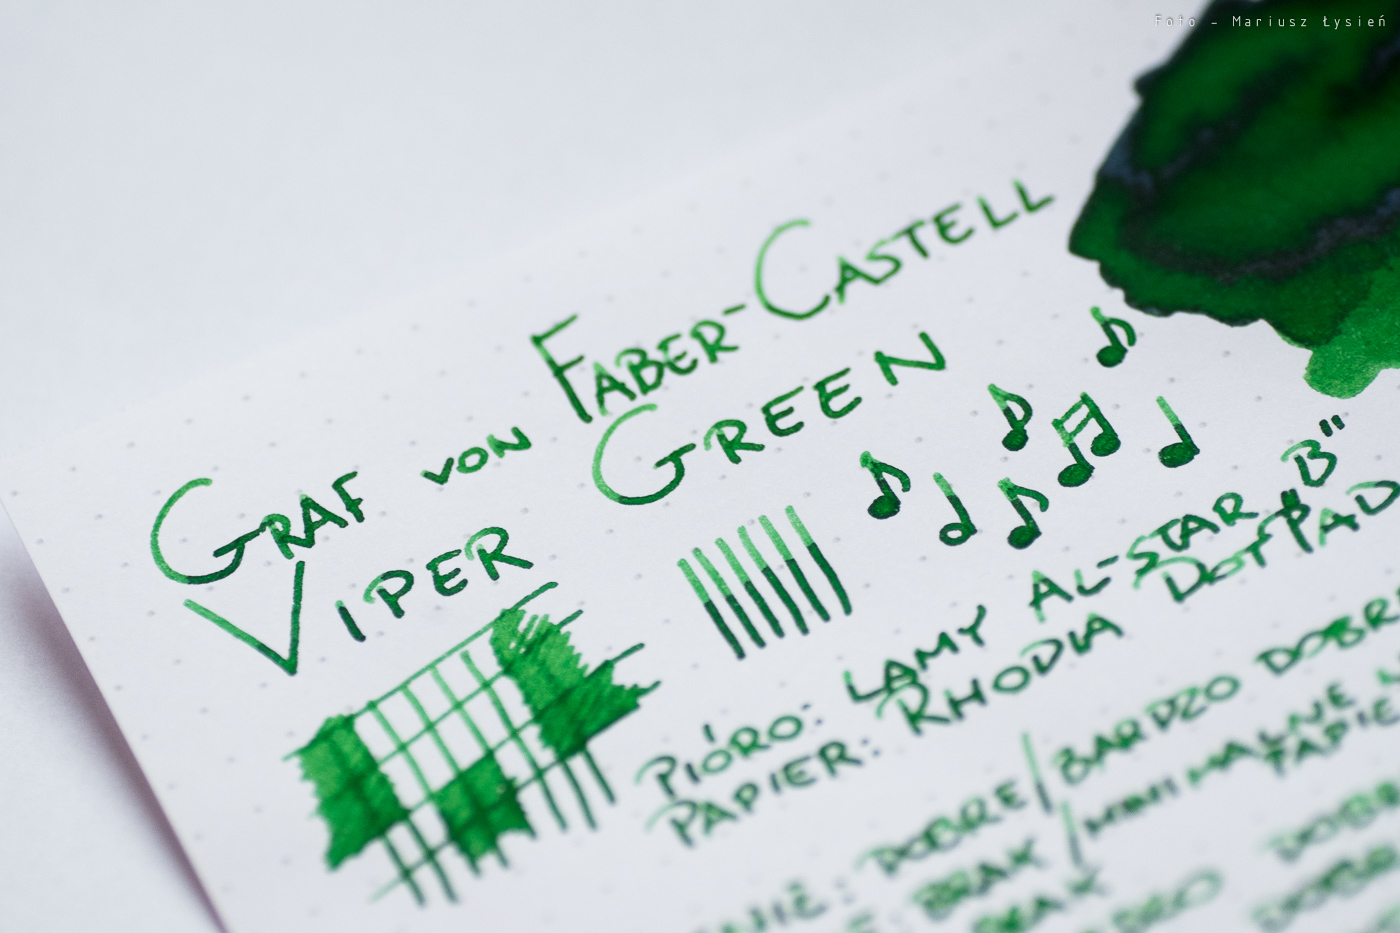 Foto - Mariusz Łysień
Graf von Faber-Castell
Viper Green
Pióro: Lamy Al-Star "B"
Papier: Rhodia Dot Pad
Dobre/Bardzo
Brak/Minimalne
Brak